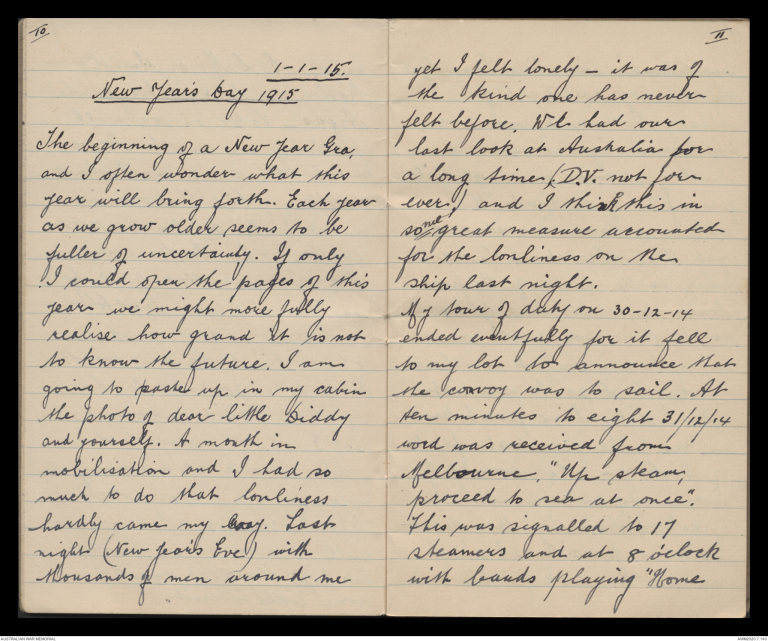 10
1-1-15.
New Year's Day 1915
The beginning of a New Year Gra,
and I often wonder what this
year will bring forth. Each year
as we grow older seems to be
fuller of uncertainty. If only
I could open the pages of this
year we might more fully
realise how grand it is not
to know the future. I am
going to paste up in my cabin
the photo of dear little Diddy
and yourself. A month in
mobilisation and I had so
much to do that lonliness
hardly came my way. Last
night (New Year's Eve) with
thousands of men around me
11
yet I felt lonely – it was of
the kind one has never
felt before. We had our
last look at Australia for
a long time (D.V. not for
ever) and I think this in
some great measure accounted
for the lonliness on the
ship last night.
My tour of duty on 30-12-14
ended eventfully for it fell
to my lot to announce that
the convoy was to sail. At
ten minutes to eight 31/12/14
word was received from
Melbourne. "Up steam,
proceed to sea at once".
This was signalled to 17
steamers and at 8 o'clock
with bands playing "Home
AUSTRALIAN WAR MEMORIAL